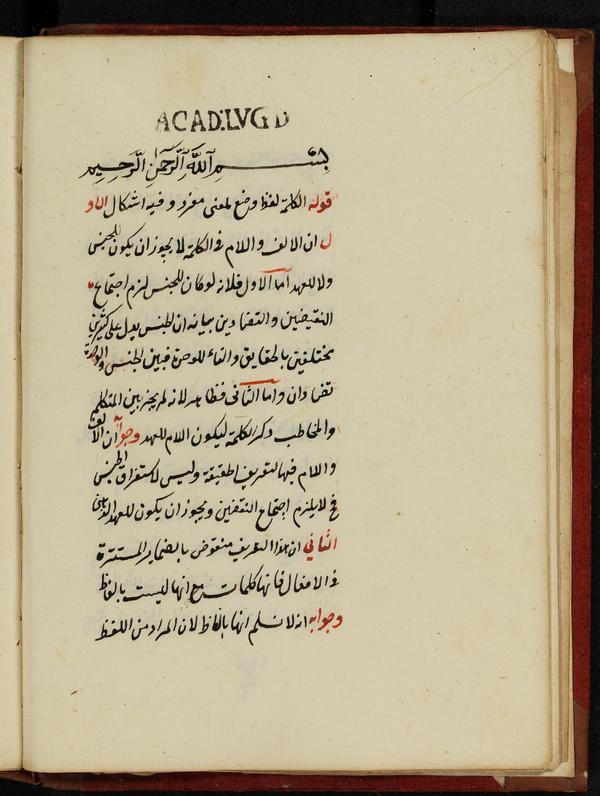 ACAD:LVGD
بسم الله الرحمن الرحيم
قوله الكلمة لفظ وضع لمعنى مفرد وفيه اشكال الاو
ل ان الالف واللام فى الكلمة لا يجوز ان يكون للجنس
ولا للعهد اما الاول فلانه لو كان للجنس لزم اجتماع
النقيضين والتضادين بيانه ان الجنس يدل على كثيرين
مختلفين بالحقايق والتاء للوحدة فبين الجنس والوحدة
تضادان واما الثانى فظاهر لانه لم يجر بين المتكلم
والمخاطب ذكر الكلمة ليكون اللام للعهد وجوابه ان الالف
واللام فيها لتعريف الحقيقة وليس لاستغراق الجنس
فح لا يلزم اجتماع النقضين ويجوز ان يكون للعهد
الثانى ان هذا التعريف منقوض بالضماير المستترة
فى الافعال فانها كلمات مع انها ليست بالفاظ
وجوابه انه لا نسلم انها بالفاظ لان المراد من اللفظ